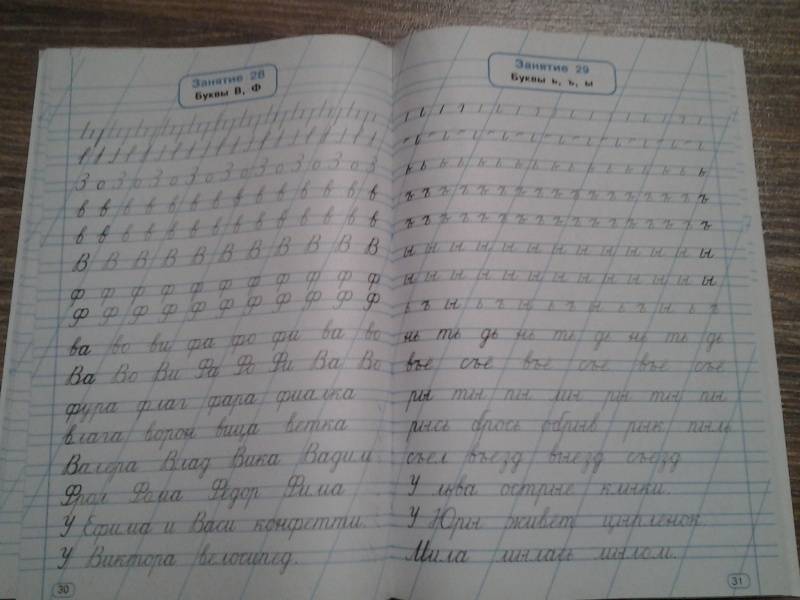 Занятие 28
Буквы В, Ф
З о З о З о З о З о З о З о З
в в в в в в в в в в в в в в
в в в в в в в в в в в в в в
В В В В В В В В В В В
ф ф ф ф ф ф ф ф ф ф ф
Ф Ф Ф Ф Ф Ф Ф Ф Ф Ф Ф
ва во ви фа фо фи ва во
Ва Во Ви Фа Фо Фи Ва Во
фура флаг фара фиалка
влага ворон вица ветка
Валера Влад Вика Вадим
Фрол Фома Фёдор Фима
У Ефима и Васи конфетти.
У Виктора велосипед.
30
Занятие 29
Буквы ь, ъ, ы
ь ь ь ь ь ь ь ь ь ь ь ь ь ь ь ь ь
ъ ъ ъ ъ ъ ъ ъ ъ ъ ъ ъ ъ ъ ъ ъ ъ ъ
ъ ъ ъ ъ ъ ъ ъ ъ ъ ъ ъ ъ ъ ъ ъ ъ ъ
ы ы ы ы ы ы ы ы ы ы ы ы ы
ы ы ы ы ы ы ы ы ы ы ы ы ы
ь ъ ы ь ъ ы ь ъ ы ь ъ ы ь ъ
нь ть дь нь ть дь нь ть дь
въе съе въе съе въе съе
ры ты пы лы ры ты пы
рысь брось обрыв рык пыль
съел въезд выезд съезд
У льва острые клыки.
У Юры живёт цыплёнок.
Мила мылась мылом.
31